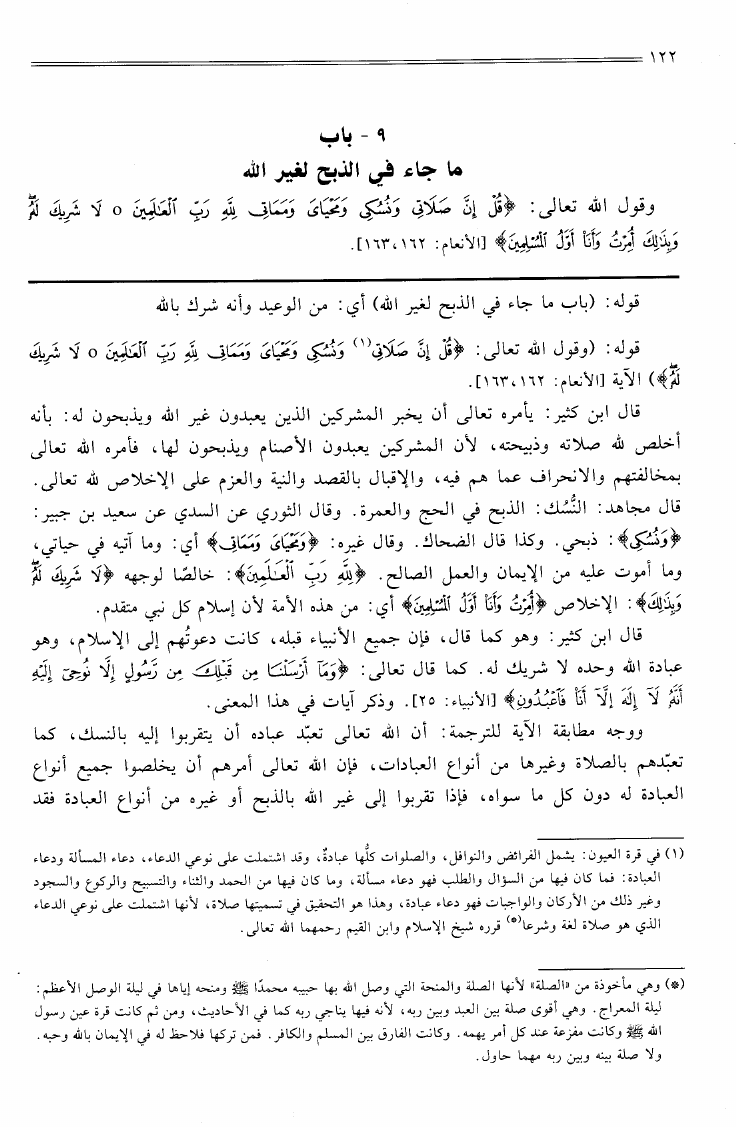 ١٢٢
٩ - باب
ما جاء في الذبح لغير الله
وقول الله تعالى: ﴿قُلْ إِنَّ صَلَاتِي وَنُسُكِي وَمَحْيَايَ وَمَمَاتِي لِلَّهِ رَبِّ الْعَالَمِينَ ٥ لَا شَرِيكَ لَهُ
وَبِذَلِكَ أُمِرْتُ وَأَنَا أَوَّلُ الْمُسْلِمِينَ﴾ [الأنعام: ١٦٢، ١٦٣].
قوله: (باب ما جاء في الذبح لغير الله) أي: من الوعيد وأنه شرك بالله
قوله: (وقول الله تعالى: ﴿قُلْ إِنَّ صَلَاتِي(١) وَنُسُكِي وَمَحْيَايَ وَمَمَاتِي لِلَّهِ رَبِّ الْعَالَمِينَ ٥ لَا شَرِيكَ
لَهُ﴾) الآية [الأنعام: ١٦٢، ١٦٣].
قال ابن كثير: يأمره تعالى أن يخبر المشركين الذين يعبدون غير الله ويذبحون له: بأنه
أخلص لله صلاته وذبيحته، لأن المشركين يعبدون الأصنام ويذبحون لها، فأمره الله تعالى
بمخالفتهم والانحراف عما هم فيه، والإقبال بالقصد والنية والعزم على الإخلاص لله تعالى.
قال مجاهد: النُّسُك: الذبح في الحج والعمرة. وقال الثوري عن السدي عن سعيد بن جبير:
﴿وَنُسُكِي﴾: ذبحي. وكذا قال الضحاك. وقال غيره: ﴿وَمَحْيَايَ وَمَمَاتِي﴾ أي: وما آتيه في حياتي،
وما أموت عليه من الإيمان والعمل الصالح. ﴿لِلَّهِ رَبِّ الْعَالَمِينَ﴾: خالصًا لوجهه ﴿لَا شَرِيكَ لَهُ
وَبِذَلِكَ﴾: الإخلاص ﴿أُمِرْتُ وَأَنَا أَوَّلُ الْمُسْلِمِينَ﴾ أي: من هذه الأمة لأن إسلام كل نبي متقدم.
قال ابن كثير: وهو كما قال، فإن جميع الأنبياء قبله، كانت دعوتُهم إلى الإسلام، وهو
عبادة الله وحده لا شريك له. كما قال تعالى: ﴿وَمَا أَرْسَلْنَا مِن قَبْلِكَ مِن رَّسُولٍ إِلَّا نُوحِي إِلَيْهِ
أَنَّهُ لَا إِلَهَ إِلَّا أَنَا فَاعْبُدُونِ﴾ [الأنبياء: ٢٥]. وذكر آيات في هذا المعنى.
ووجه مطابقة الآية للترجمة: أن الله تعالى تعبّد عباده أن يتقربوا إليه بالنسك، كما
تعبّدهم بالصلاة وغيرها من أنواع العبادات، فإن الله تعالى أمرهم أن يخلصوا جميع أنواع
العبادة له دون كل ما سواه، فإذا تقربوا إلى غير الله بالذبح أو غيره من أنواع العبادة فقد
(١) في قرة العيون: يشمل الفرائض والنوافل، والصلوات كلُّها عبادةٌ، وقد اشتملت على نوعي الدعاء، دعاء المسألة ودعاء
العبادة: فما كان فيها من السؤال والطلب فهو دعاء مسألة، وما كان فيها من الحمد والثناء والتسبيح والركوع والسجود
وغير ذلك من الأركان والواجبات فهو دعاء عبادة، وهذا هو التحقيق في تسميتها صلاة، لأنها اشتملت على نوعي الدعاء
الذي هو صلاة لغة وشرعا(*) قرره شيخ الإسلام وابن القيم رحمهما الله تعالى.
(*) وهي مأخوذة من «الصلة» لأنها الصلة والمنحة التي وصل الله بها حبيبه محمدًا ﷺ ومنحه إياها في ليلة الوصل الأعظم:
ليلة المعراج. وهي أقوى صلة بين العبد وبين ربه، لأنه فيها يناجي ربه كما في الأحاديث، ومن ثم كانت قرة عين رسول
الله ﷺ وكانت مفزعة عند كل أمر يهمه. وكانت الفارق بين المسلم والكافر. فمن تركها فلاحظ له في الإيمان بالله وحبه.
ولا صلة بينه وبين ربه مهما حاول.